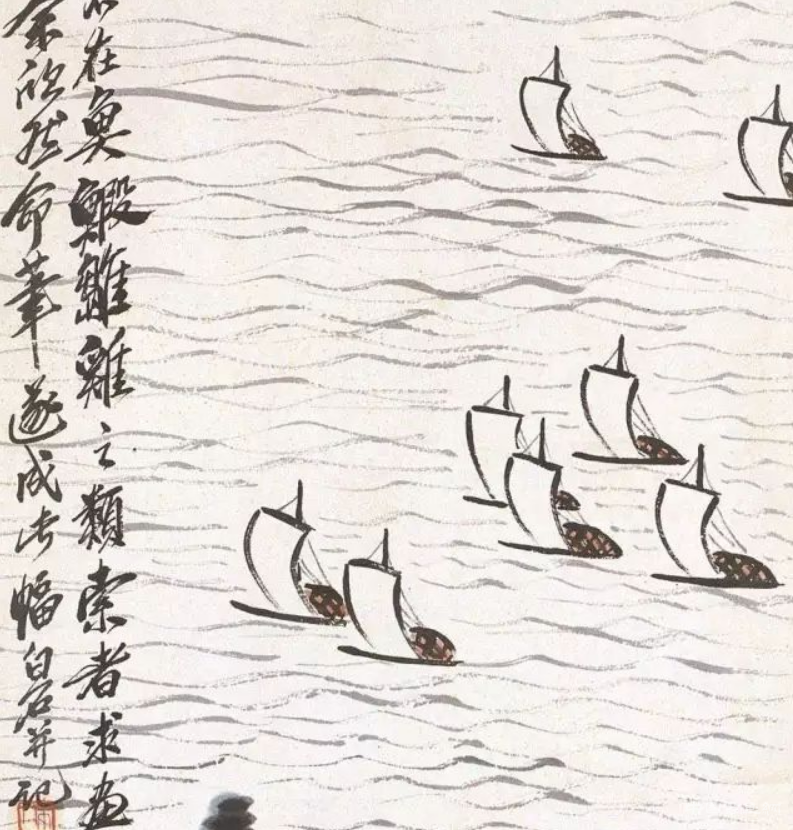 在魚蝦雛雞之類索者求画
余欣然命筆遂成此幅白石并記